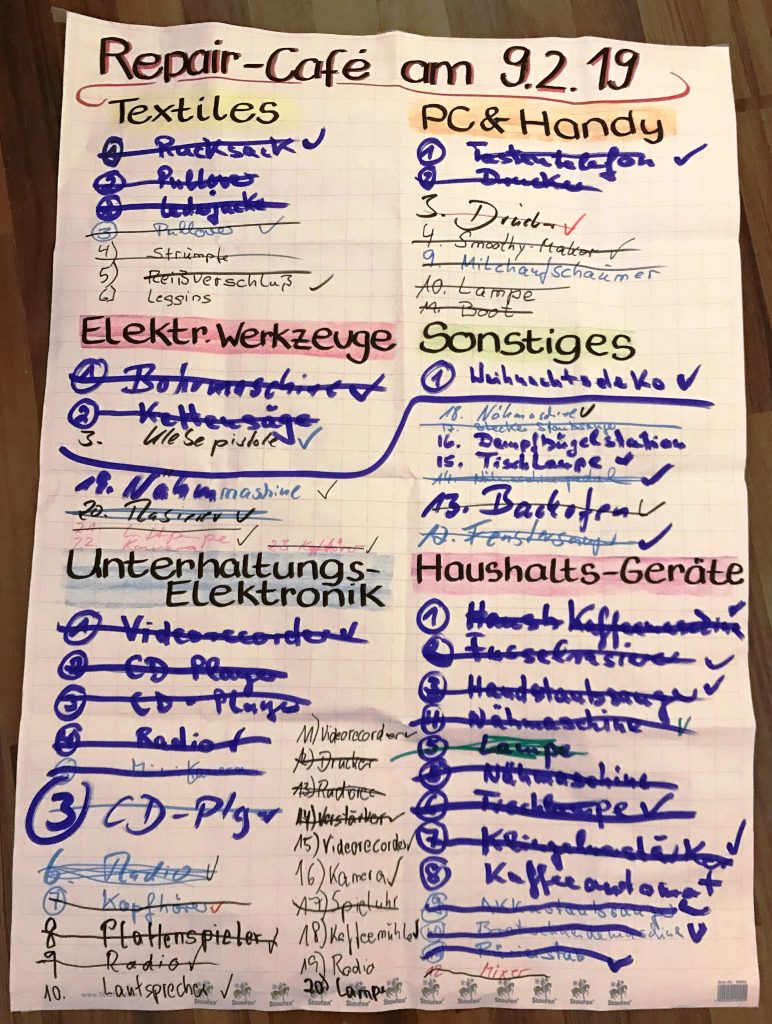 Repair-Café am 9.2.19
Textiles
1 Rucksack ✓
2 Pullover
3 Lederjacke
3 Pullover ✓
4) Strümpfe
5) Reißverschluß ✓
6) Leggins
PC & Handy
1 Tastentelefon ✓
2 Drucker
3. Drucker ✓
4. Smoothy-Maker ✓
9. Milchaufschäumer
10. Lampe
11. Boot
Elektr. Werkzeuge
1 Bohrmaschine ✓
2 Kettensäge
3. Klebepistole ✓
19. Nähmaschine ✓
20. Rasierer ✓
21
22 ✓
23 Kopfhörer ✓
Sonstiges
1 Weihnachtsdeko ✓
18. Nähmaschine ✓
17. Stecker Staubsauger
16. Dampfbügelstation
15. Tischlampe ✓
14. ✓
13. Backofen ✓
12. ✓
Unterhaltungs-
Elektronik
1 Videorecorder ✓
2 CD Player
3 CD-Player
4 Radio ✓
3 CD-Play ✓
6. Radio ✓
7 Kopfhörer ✓
8 Plattenspieler ✓
9 Radio ✓
10. Lautsprecher ✓
11) Videorecorder ✓
12) Drucker
13)
14) Verstärker ✓
15) Videorecorder ✓
16) Kamera ✓
17) Spieluhr
18) Kaffeemühle ✓
19) Radio
20) Lampe
Haushalts-Geräte
1 Kaffeemaschine ✓
2 Fusselrasierer ✓
3 Handstaubsauger ✓
4 Nähmaschine ✓
5 Lampe
Nähmaschine
6 Tischlampe ✓
7 ✓
8 Kaffeeautomat
9 Akkustaubsauger
10 Brotschneidemaschine ✓
Pürierstab ✓
12 Mixer
Staufen Staufen Staufen Staufen Staufen Staufen Staufen Staufen